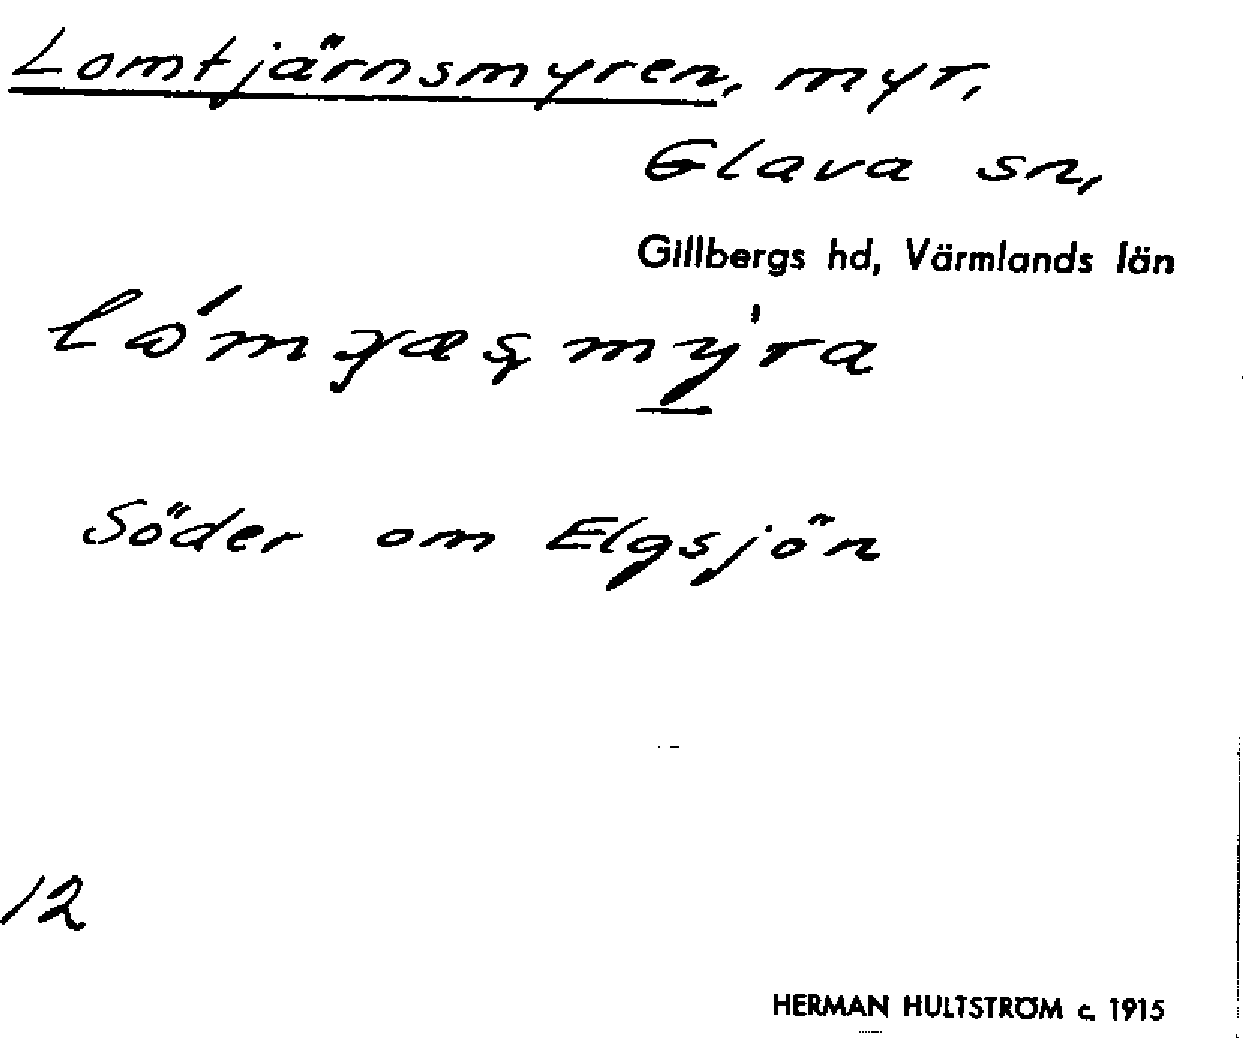 Lomtjärnsmyren, myr,
Glava sn,
Gillbergs hd, Värmlands län
Söder om Elgsjön
12
HERMAN HULTSTRÖM c. 1915